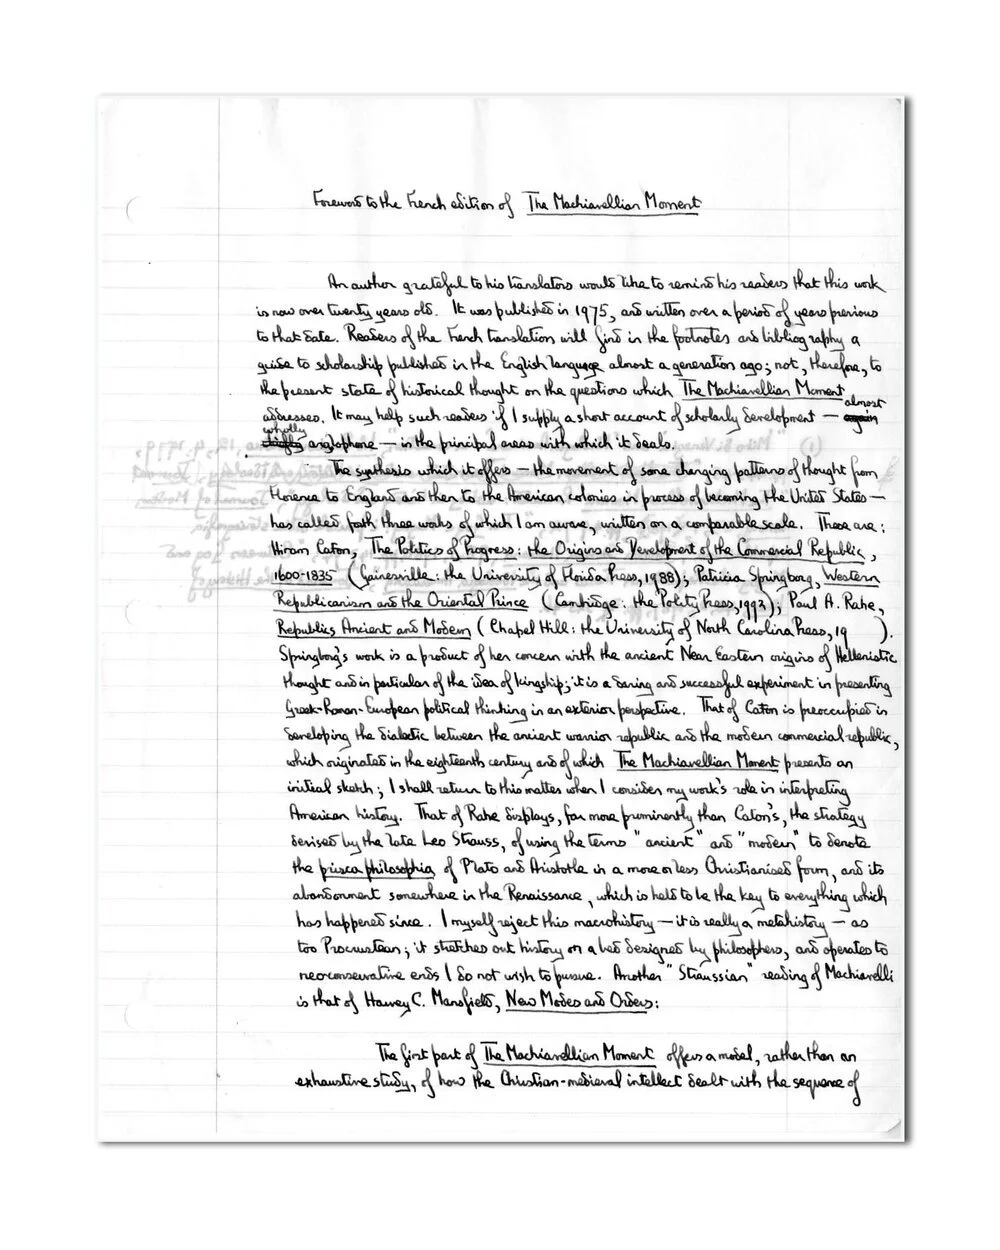 Foreword to the French edition of The Machiavellian Moment
An author grateful to his translators would like to remind his readers that this work
is now over twenty years old. It was published in 1975, and written over a period of years previous
to that date. Readers of the French translation will find in the footnotes and bibliography a
guide to scholarship published in the English language almost a generation ago; not, therefore, to
the present state of historical thought on the questions which The Machiavellian Moment
almost
addresses. It may help such readers if I supply a short account of scholarly development — again
wholly
chiefly anglophone — in the principal areas with which it deals.
The synthesis which it offers — the movement of some changing patterns of thought from
Florence to England and then to the American colonies in process of becoming the United States —
has called forth three works of which I am aware, written on a comparable scale. These are:
Hiram Caton, The Politics of Progress: the Origins and Development of the Commercial Republic,
1600-1835 (Gainesville: the University of Florida Press, 1988); Patricia Springborg, Western
Republicanism and the Oriental Prince (Cambridge: the Polity Press, 1992); Paul A. Rahe,
Republics Ancient and Modern (Chapel Hill: the University of North Carolina Press, 19 ).
Springborg's work is a product of her concern with the ancient Near Eastern origins of Hellenistic
thought and in particular of the idea of kingship; it is a daring and successful experiment in presenting
Greek-Roman-European political thinking in an exterior perspective. That of Caton is preoccupied in
developing the dialectic between the ancient warrior republic and the modern commercial republic,
which originated in the eighteenth century and of which The Machiavellian Moment presents an
initial sketch; I shall return to this matter when I consider my work's role in interpreting
American history. That of Rahe displays, far more prominently than Caton's, the strategy
devised by the late Leo Strauss, of using the terms "ancient" and "modern" to denote
the prisca philosophia of Plato and Aristotle in a more or less Christianised form, and its
abandonment somewhere in the Renaissance, which is held to be the key to everything which
has happened since. I myself reject this macrohistory — it is really a metahistory — as
too Procrustean; it stretches out history on a bed designed by philosophers, and operates to
neoconservative ends I do not wish to pursue. Another "Straussian" reading of Machiavelli
is that of Harvey C. Mansfield, New Modes and Orders:
The first part of The Machiavellian Moment offers a model, rather than an
exhaustive study, of how the Christian-medieval intellect dealt with the sequence of